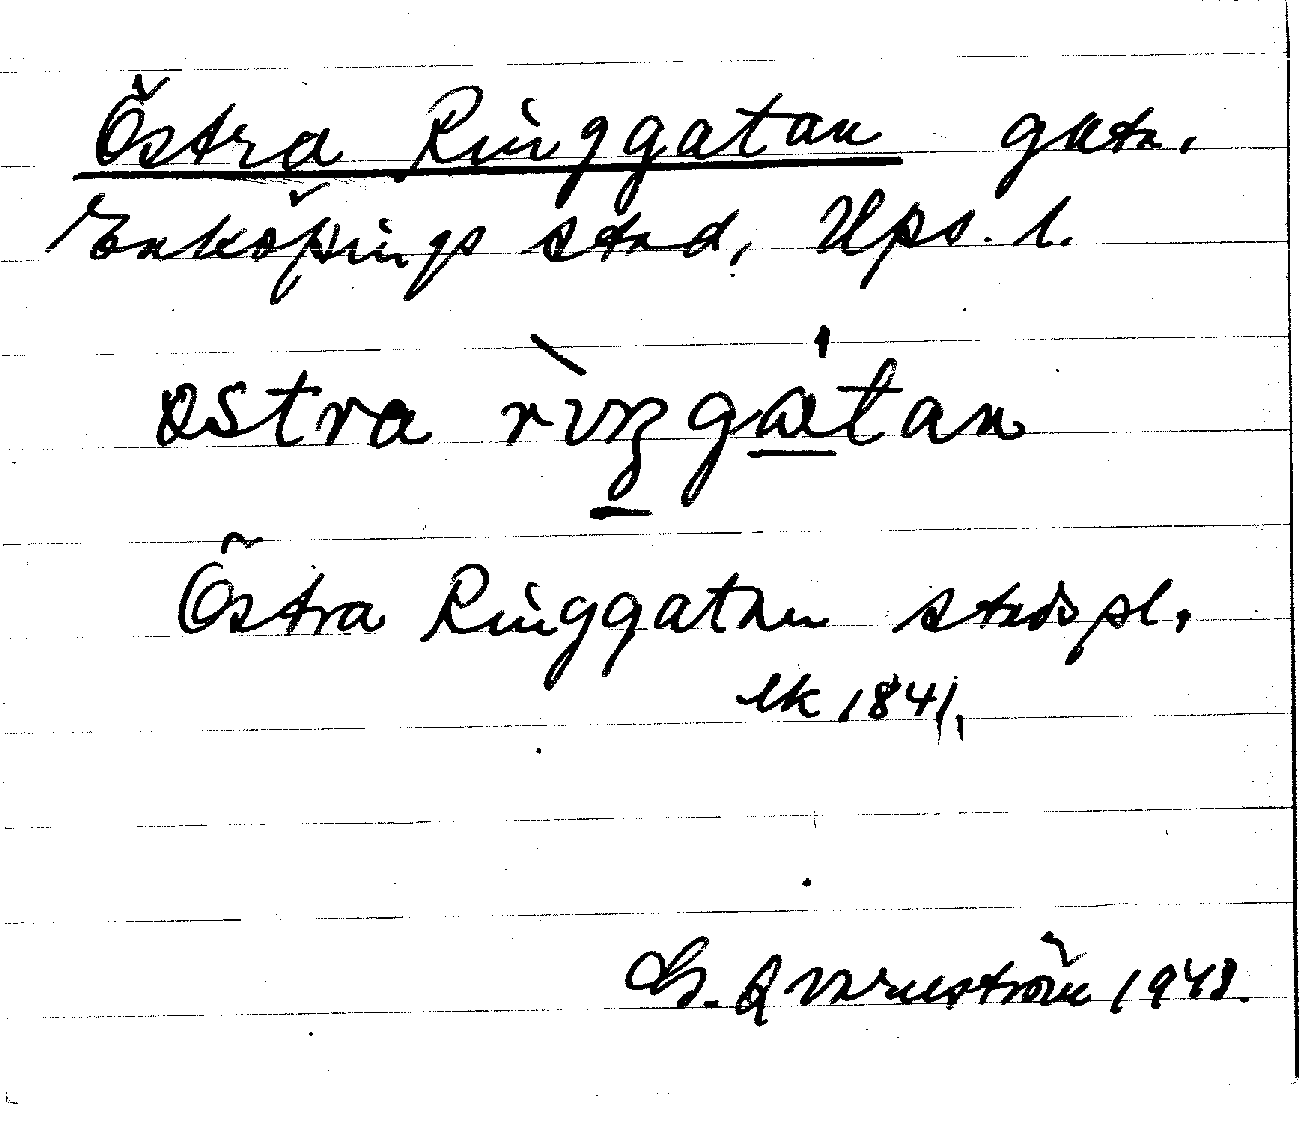 Östra Ringgatan gata.
Enköpings stad, Ups. l.
östra rìŋgátan
Östra Ringgatan stadspl.
lk 1841.
G. Qvarnström 1948.